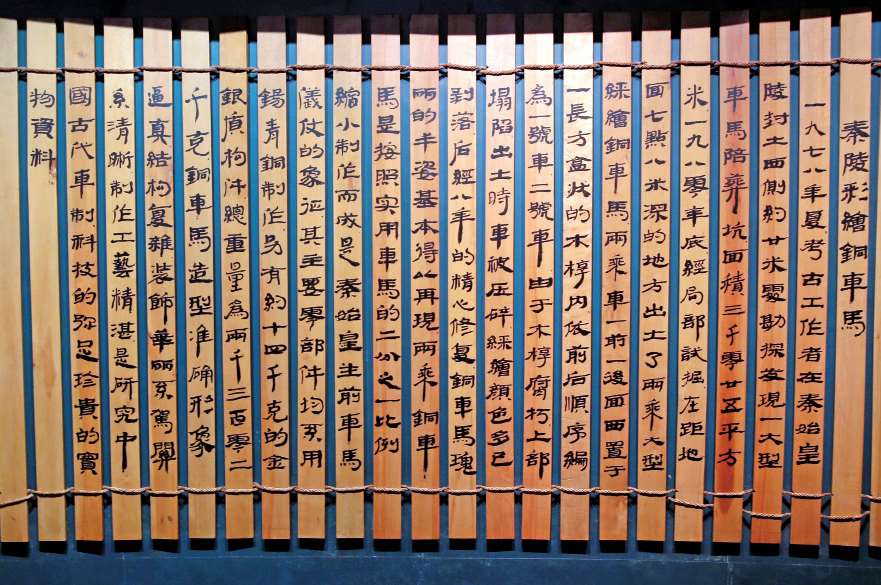 秦陵彩繪銅車馬
一九七八年夏考古工作者在秦始皇
陵封土西側約廿米處勘探發現一大型
車馬陪葬坑面積三千零廿五平方
米一九八零年底經局部試掘在距地
面七點八米深的地方出土了兩乘大型
綵繪銅車馬兩乘車一前一後面西置于
一長方盒狀的木椁內依前后順序編
為一號車二號車由于木椁腐朽上部
塌陷出土時車被压碎綵繪顏色多已
剥落后經八年的精心修复銅車馬瑰
丽的丰姿基本得以再現兩乘銅車
馬是按照实用車馬的二分之一比例
縮小制作而成是秦始皇生前車馬
儀仗的象征其主要零部件均系用
錫青銅制作另有約十四千克的金
銀質构件總重量為兩千三百零二
千克銅車馬造型准确形象
逼真結构复雜裝飾華丽系駕關
系清晰制作工藝精湛是研究中
國古代車制科技的弥足珍貴的實
物資料